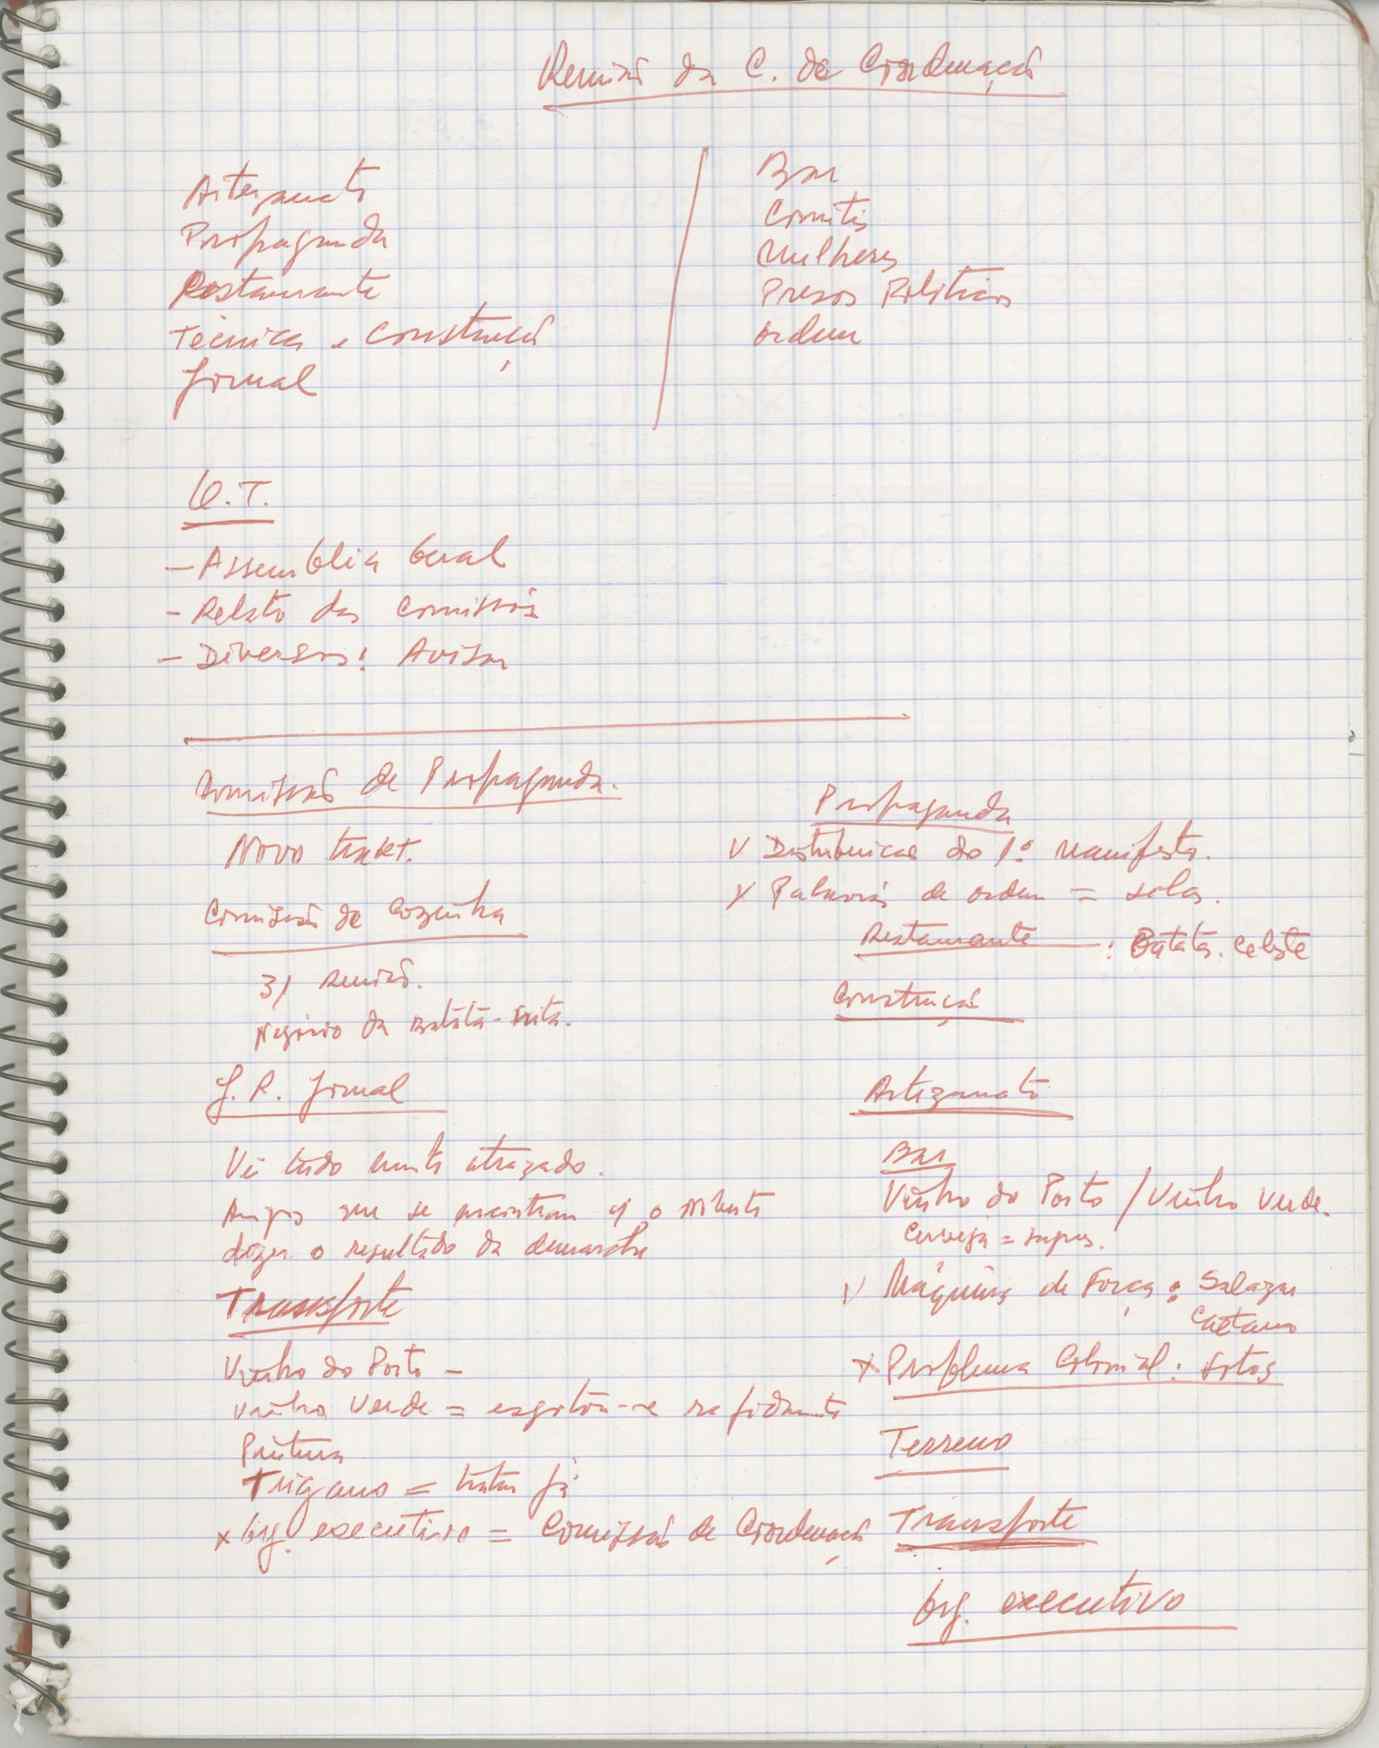 Reunião da C. de Coordenação
Artezanato
Propaganda
Restaurante
Técnica e Construção
Jornal
Bar
Comités
Mulheres
Presos Politicos
ordem
O.T.
- Assembleia Geral
- Relato das Comissões
- Diversos: Avisar
Comissão de Propaganda.
Novo trakt.
Comissão de Cozinha
3) Reunião.
Negócio da Batata-frita.
J.R. Jornal
Vê tudo muito atrazado.
Amigos que se encontram c/ o
dizer o resultado da demarche
Transporte
Vinho do Porto -
Vinho Verde = esgotou-se rapidamente
Pintura
Trigano = tratar já
x Org. executivo = Comissão de Coordenação
Propaganda
V Distribuicae do 1º manifesto.
x Palavras de ordem =
Restaurante : Batatas. Celeste
Construção
Artezanato
Bar
Vinho do Porto / Vinho Verde.
Cerveja = supres.
V Máquina de Força : Salazar
Caetano
x Problema Colonial: fotos
Terreno
Transporte
Org. executivo